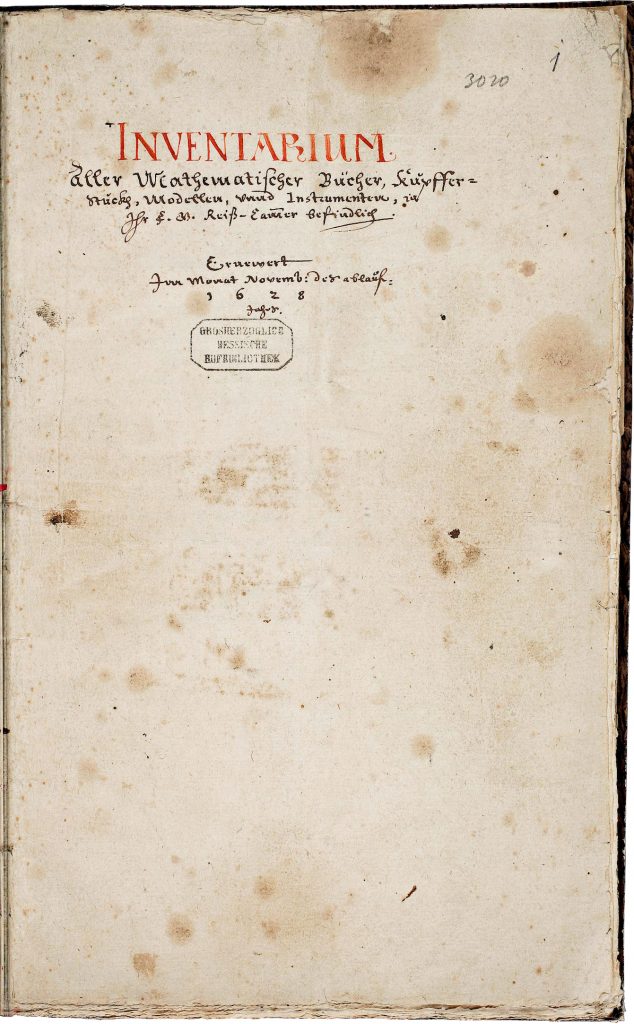 3020
1
INVENTARIUM
Aller Mathematischer Bücher, Kupffer=
stückh, Modellen, unnd Instrumenten, in
Ihr F. G. Reiß-Cam̄er befindlich.
Ernewert
Im Monat Novemb: des ablauf=
1 6 2 8
Jahrs.
GROSHERZOGLICH
HESSISCHE
HOFBIBLIOTHEK